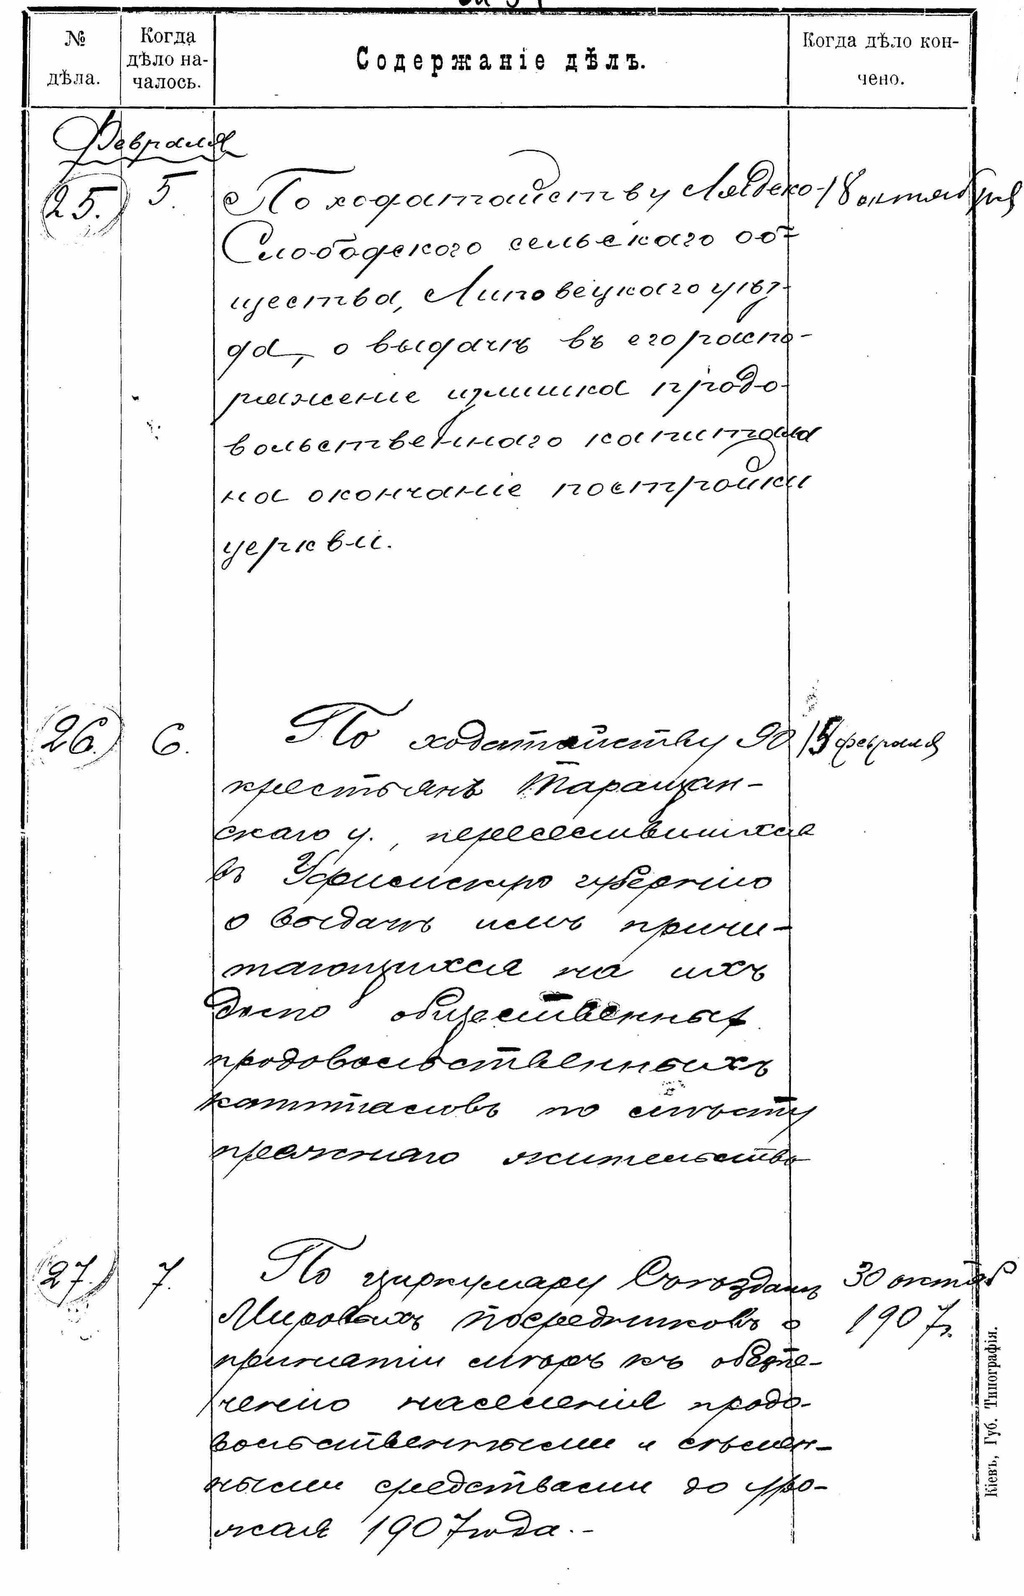 № дѣла.
Когда дѣло на-
чалось.
Содержаніе дѣлъ.
Когда дѣло кон-
чено.
Февраля
25. 5. По ходатайству Лядско- 18 октября
Слободского сельскаго об-
щества, Липовецкаго уѣз-
да, о выдачѣ въ его распо-
ряженіе излишка продо-
вольственнаго капитала
на окончаніе постройки
церкви.
26. 6. По ходатайству 90 15 февраля
крестьянъ Таращан-
скаго у., переселившихся
въ Уфимскую губернію
о выдачѣ имъ причи-
тающихся на ихъ
долю общественных
продовольственныхъ
капиталовъ по мѣсту
прежняго жительства
27. 7. По циркуляру Съѣздамъ 30 октяб
Мировыхъ Посредниковъ о 1907 г.
принятіи мѣръ къ обезпе-
ченію населенія продо-
вольственными и сѣмен-
ными средствами до уро-
жая 1907 года.-
Кіевъ, Губ. Типографія.